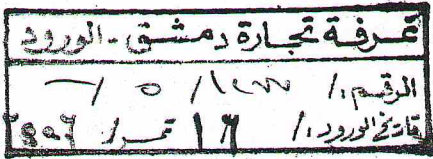 غرفة تجارة دمشق - الورود
الرقم: / ١٢٧٧ / ٥ / ـ
تاريخ الورود: / ١٦ تموز /